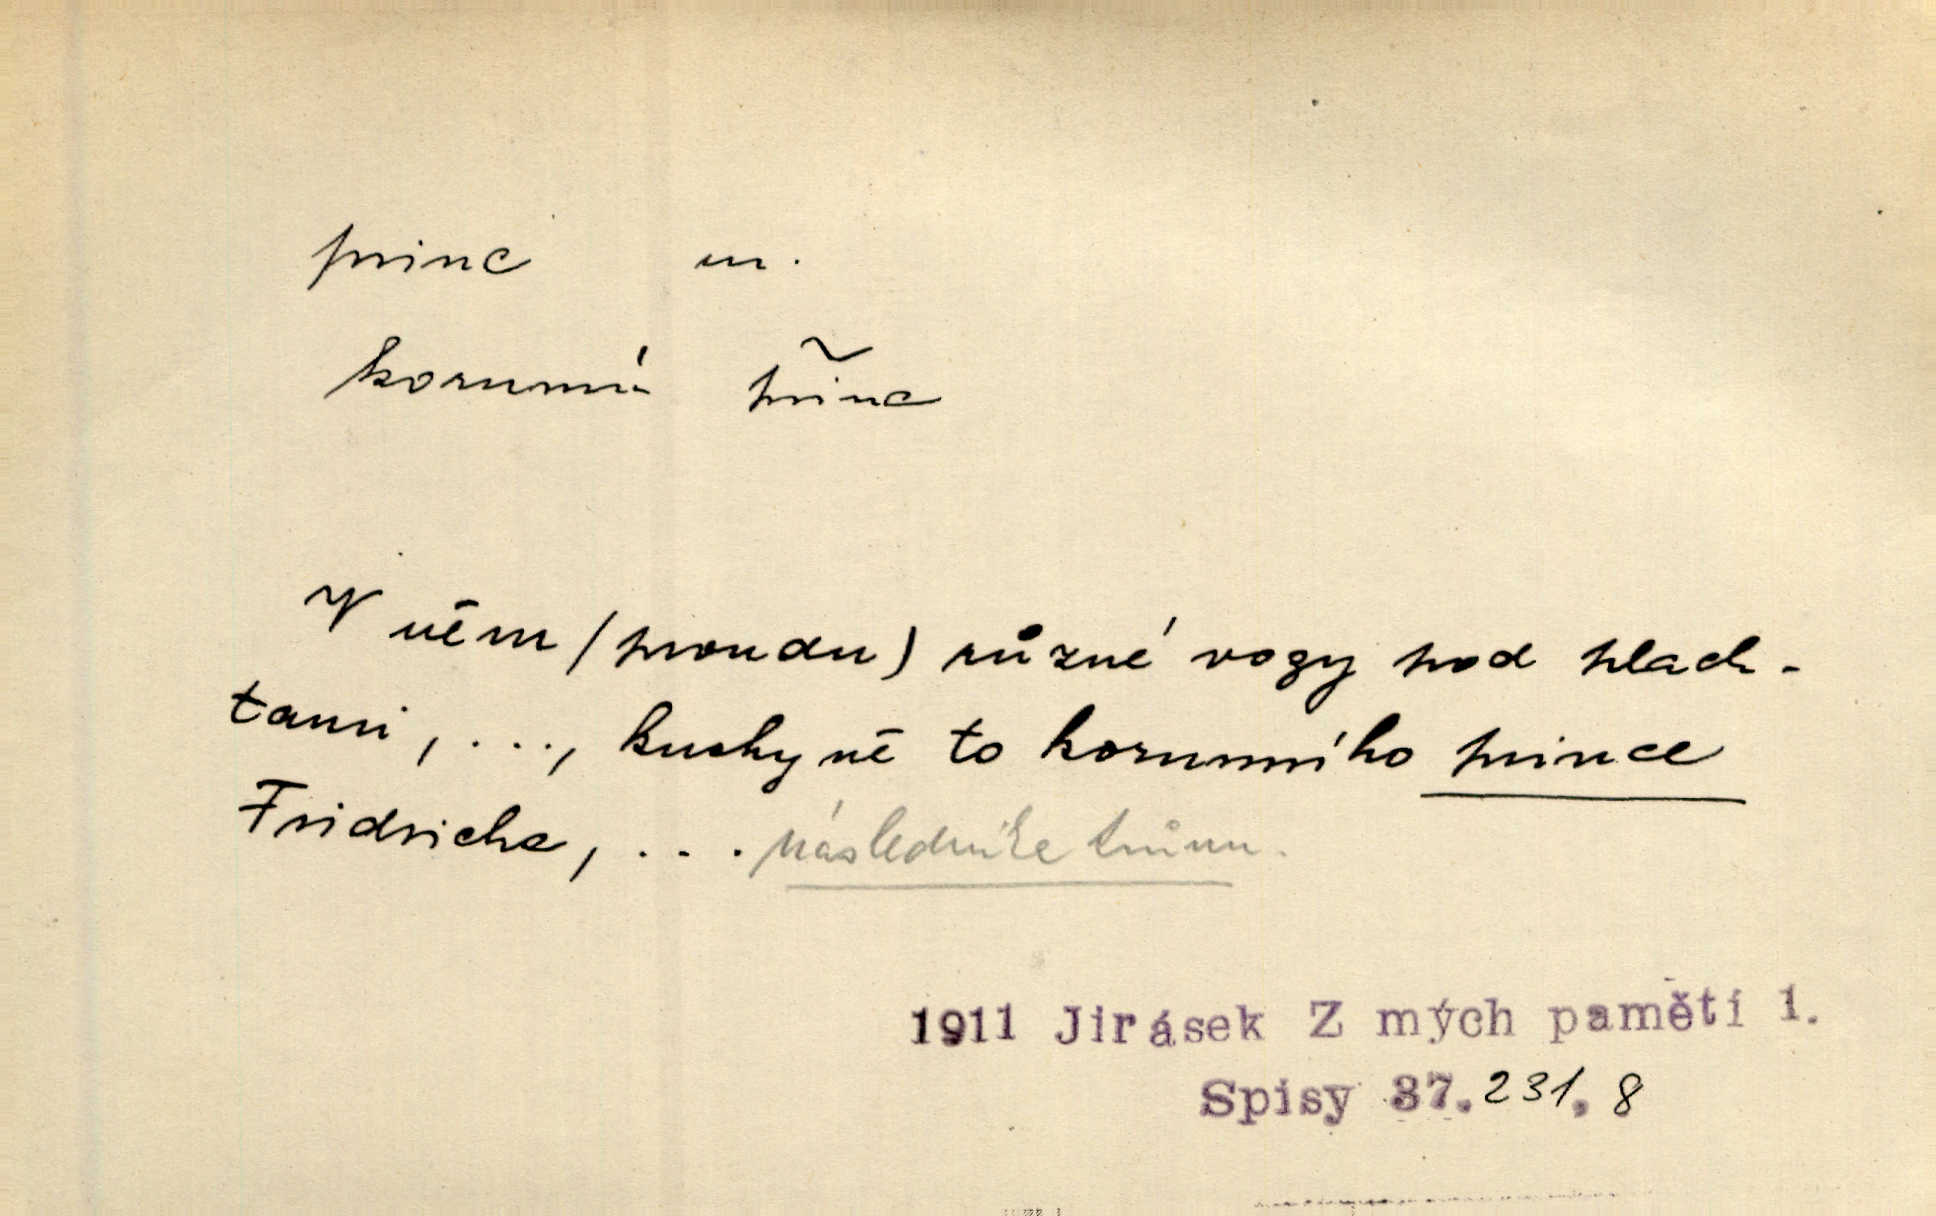 princ m.
korunní princ
V něm (proudu) různé vozy pod plach-
tami, ..., kuchyně to korunního prince
Fridricha, ... následníka trůnu.
1911 Jirásek Z mých pamětí 1.
Spisy 37. 231, 8